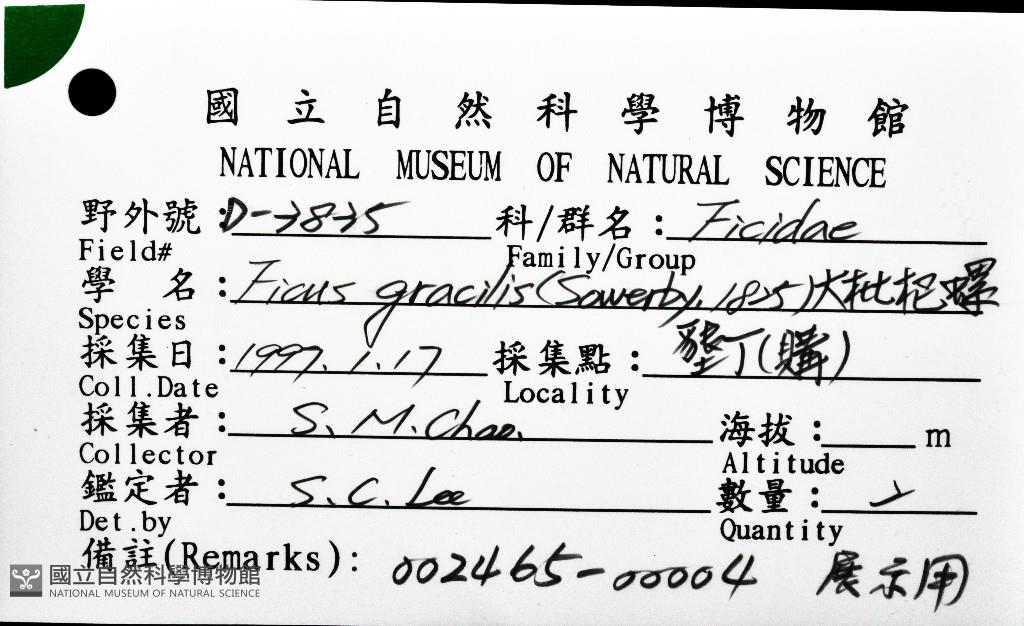 國立自然科學博物館
NATIONAL MUSEUM OF NATURAL SCIENCE
野外號:D-7875 科/群名: Ficidae
Field# Family/Group
學 名: Ficus gracilis (Sowerby, 1825) 大枇杷螺
Species
採集日: 1997. 1. 17 採集點: 墾丁(購)
Coll.Date Locality
採集者: S. M. Chao. 海拔: m
Collector Altitude
鑑定者: S. C. Lee 數量: 2
Det.by Quantity
備註(Remarks): 002465-00004 展示用
國立自然科學博物館
NATIONAL MUSEUM OF NATURAL SCIENCE